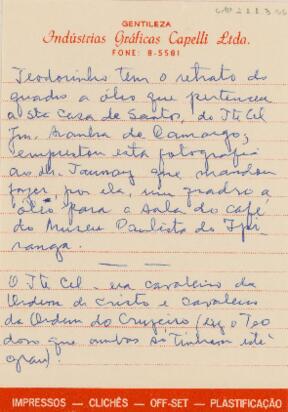 GENTILEZA
Indústrias Gráficas Capelli Ltda.
FONE: 8-5581
Teodorinho tem o retrato do
quadro a óleo que pertenceu
a Sta Casa de Santos, do Tte Cel
Aranha de Camargo;
emprestou esta fotografia
ao dr. Taunay que mandou
fazer, por ela, um quadro a
"óleo" para a sala do café
do Museu Paulista do Ipi-
ranga.
O Tte Cel. era cavaleiro da
Ordem de Cristo e cavaleiro
da Ordem do Cruzeiro (diz o Teo
doro que ambos só tinham este
grau).
IMPRESSOS — CLICHÊS — OFF-SET — PLASTIFICAÇÃO